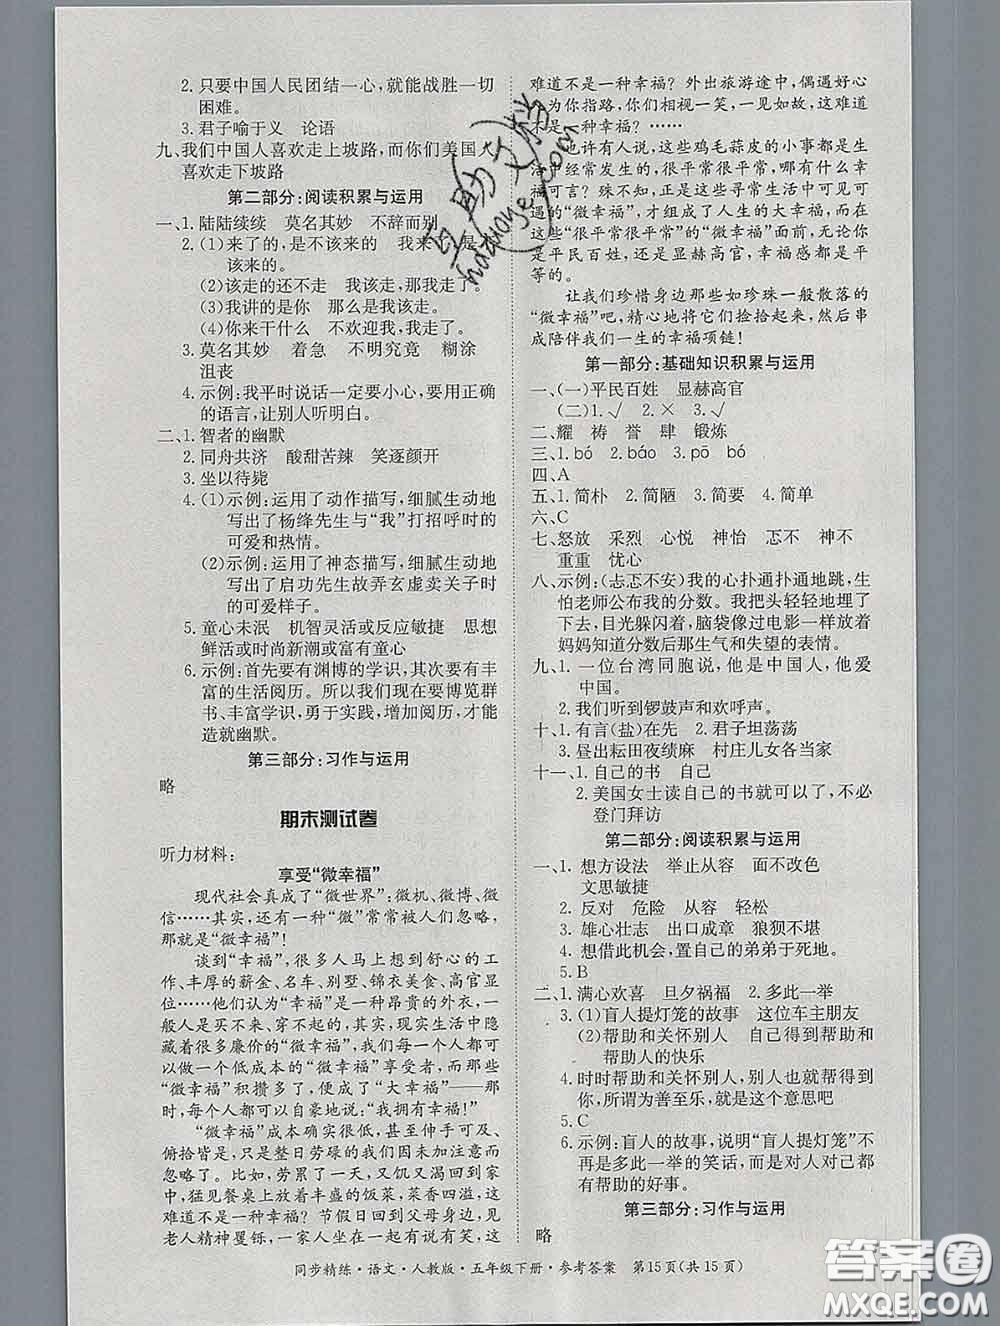 2. 只要中国人民团结一心,就能战胜一切
困难。
3. 君子喻于义　论语
九、我们中国人喜欢走上坡路,而你们美国人
喜欢走下坡路
第二部分:阅读积累与运用
一、1. 陆陆续续　莫名其妙　不辞而别
2. (1)来了的,是不该来的　我来了,是
该来的。
(2)该走的还不走　我该走,那我走了。
(3)我讲的是你　那么是我该走。
(4)你来干什么　不欢迎我,我走了。
3. 莫名其妙　着急　不明究竟　糊涂
沮丧
4. 示例:我平时说话一定要小心,用正确
的语言,让别人听明白。
二、1. 智者的幽默
2. 同舟共济　酸甜苦辣　笑逐颜开
3. 坐以待毙
4. (1)示例:运用了动作描写,细腻生动地
写出了杨绛先生与“我”打招呼时的
可爱和热情。
(2)示例:运用了神态描写,细腻生动地
写出了启功先生故弄玄虚卖关子时
的可爱样子。
5. 童心未泯　机智灵活或反应敏捷　思想
鲜活或时尚新潮或富有童心
6. 示例:首先要有渊博的学识,其次要有丰
富的生活阅历。所以我们现在要博览群
书、丰富学识,勇于实践,增加阅历,才能
造就幽默。
第三部分:习作与运用
略
期末测试卷
听力材料:
享受“微幸福”
现代社会真成了“微世界”:微机、微博、微
信……其实,还有一种“微”常常被人们忽略,
那就是“微幸福”!
谈到“幸福”,很多人马上想到舒心的工
作、丰厚的薪金、名车、别墅、锦衣美食、高官显
位……他们认为“幸福”是一种昂贵的外衣,一
般人是买不起、穿不起的,其实,现实生活中隐
藏着很多廉价的“微幸福”,我们每一个人都可
以做一个低成本的“微幸福”享受者,而那些
“微幸福”积攒多了,便成了“大幸福”——那
时,每个人都可以自豪地说:“我拥有幸福!”
“微幸福”成本确实很低,甚至伸手可及、
俯拾皆是,只是整日劳碌的我们因未加注意而
忽略了。比如,劳累了一天,又饥又渴回到家
中,猛见餐桌上放着丰盛的饭菜,菜香四溢,这
难道不是一种幸福?节假日回到父母身边,见
老人精神矍铄,一家人坐在一起有说有笑,这
难道不是一种幸福?外出旅游途中,偶遇好心
人为你指路,你们相视一笑,一见如故,这难道
不是一种幸福?……
也许有人说,这些鸡毛蒜皮的小事都是生
活中经常发生的,很平常很平常,哪有什么幸
福可言?殊不知,正是这些寻常生活中可见可
遇的“微幸福”,才组成了人生的大幸福,而在
这些“很平常很平常”的“微幸福”面前,无论你
是平民百姓,还是显赫高官,幸福感都是平
等的。
让我们珍惜身边那些如珍珠一般散落的
“微幸福”吧,精心地将它们捡拾起来,然后串
成陪伴我们一生的幸福项链!
第一部分:基础知识积累与运用
一、(一)平民百姓　显赫高官
(二)1. √　2. ×　3. √
二、耀　祷　誉　肆　锻炼
三、1. bó　2. báo　3. pō　bó
四、A
五、1. 简朴　2. 简陋　3. 简要　4. 简单
六、C
七、怒放　采烈　心悦　神怡　忑不　神不
重重　忧心
八、示例:(忐忑不安)我的心扑通扑通地跳,生
怕老师公布我的分数。我把头轻轻地埋了
下去,目光躲闪着,脑袋像过电影一样放着
妈妈知道分数后那生气和失望的表情。
九、1. 一位台湾同胞说,他是中国人,他爱
中国。
2. 我们听到锣鼓声和欢呼声。
十、1. 有言(盐)在先　2. 君子坦荡荡
3. 昼出耘田夜绩麻　村庄儿女各当家
十一、1. 自己的书　自己
2. 美国女士读自己的书就可以了,不必
登门拜访
第二部分:阅读积累与运用
一、1. 想方设法　举止从容　面不改色
文思敏捷
2. 反对　危险　从容　轻松
3. 雄心壮志　出口成章　狼狈不堪
4. 想借此机会,置自己的弟弟于死地。
5. B
二、1. 满心欢喜　旦夕祸福　2. 多此一举
3. (1)盲人提灯笼的故事　这位车主朋友
(2)帮助和关怀别人　自己得到帮助和
帮助人的快乐
4. 时时帮助和关怀别人,别人也就帮得到
你,所谓为善至乐,就是这个意思吧
5. C
6. 示例:盲人的故事,说明“盲人提灯笼”不
再是多此一举的笑话,而是对人对己都
有帮助的好事。
第三部分:习作与运用
略
同步精练·语文·人教版·五年级下册·参考答案　第15页(共15页)
答案圈
MXQE.COM